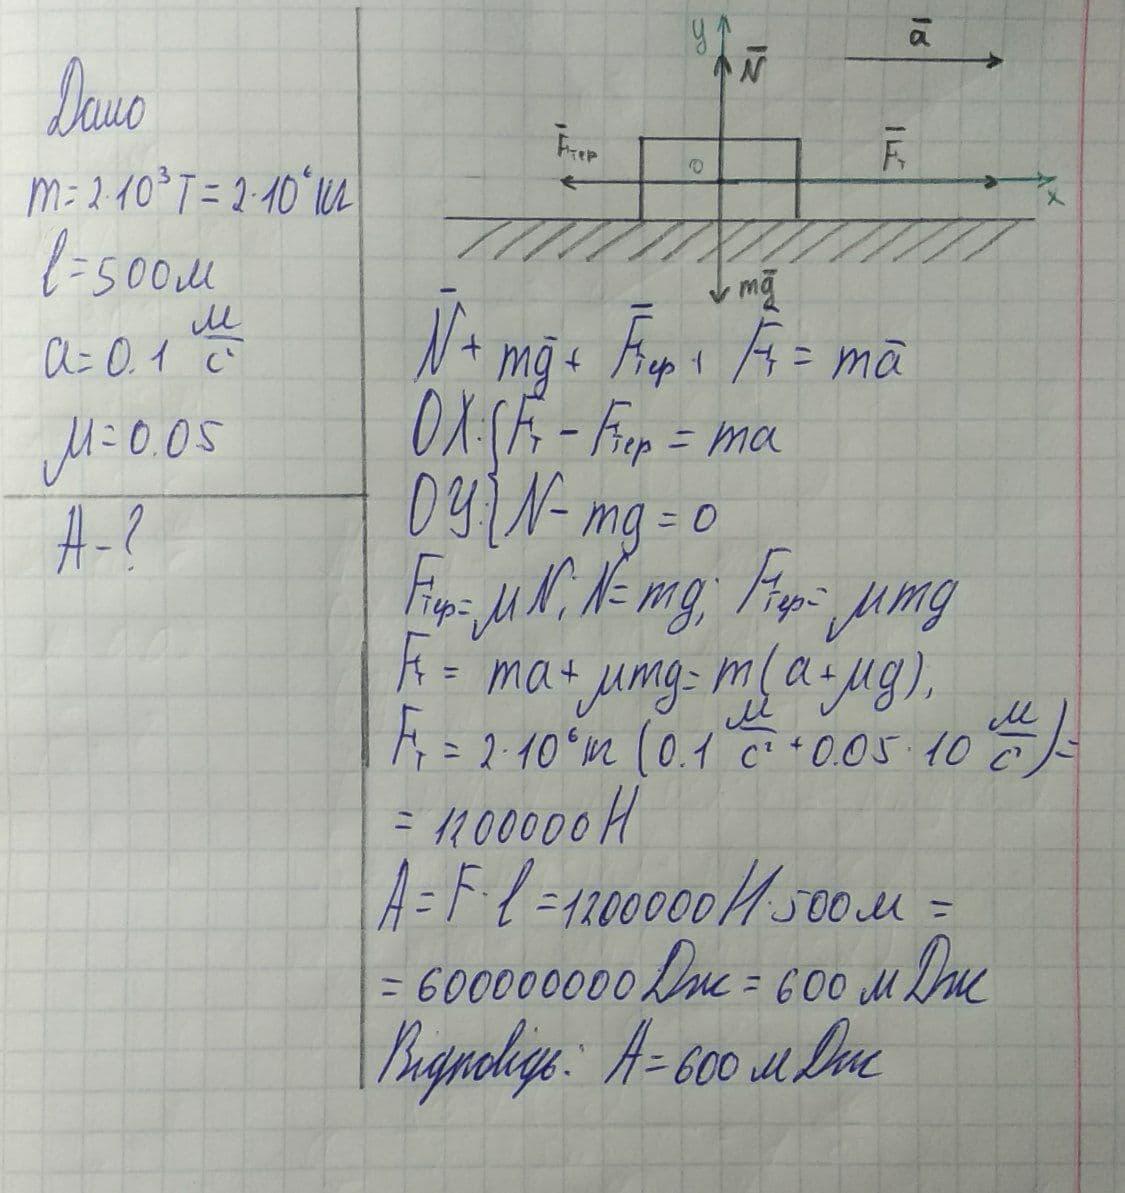 Дано
m=2·10³т=2·10⁶кг
l=500м
a=0.1 м/с²
μ=0.05
A-?
y
N̄
ā
F̄тер
0
F̄т
x
mḡ
N̄+mḡ+F̄тер+F̄т=mā
OX:{Fт-Fтер=ma
OY:{N-mg=0
Fтер=μN; N=mg; Fтер=μmg
Fт=ma+μmg=m(a+μg),
Fт=2·10⁶кг(0.1 м/с²+0.05·10 м/с²)=
=1200000Н
A=F·l=1200000Н·500м=
=600000000Дж=600мДж
Відповідь: A=600мДж